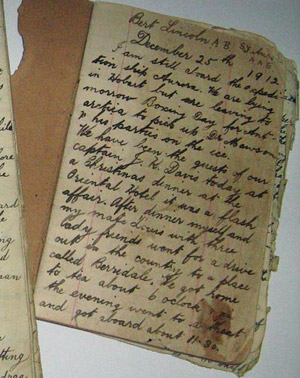 Bert Lincoln A.B. Sydney
A A E
December 25th 1912
I am still aboard the expedi-
tion ship Aurora. We are lying
in Hobart but are leaving to
morrow Boxing Day for Ant-
arctica to pick up Dr Mawson
& his parties on the ice.
We have been the guests of our
captain J. K. Davis today at
a Christmas dinner at the
Oriental Hotel it was a flash
affair. After dinner myself and
my mate with three
lady friends went for a drive
out in the country to a place
called Berridale. We got home
to tea about 6 oclock
the evening went to a
and got aboard about 11.30.